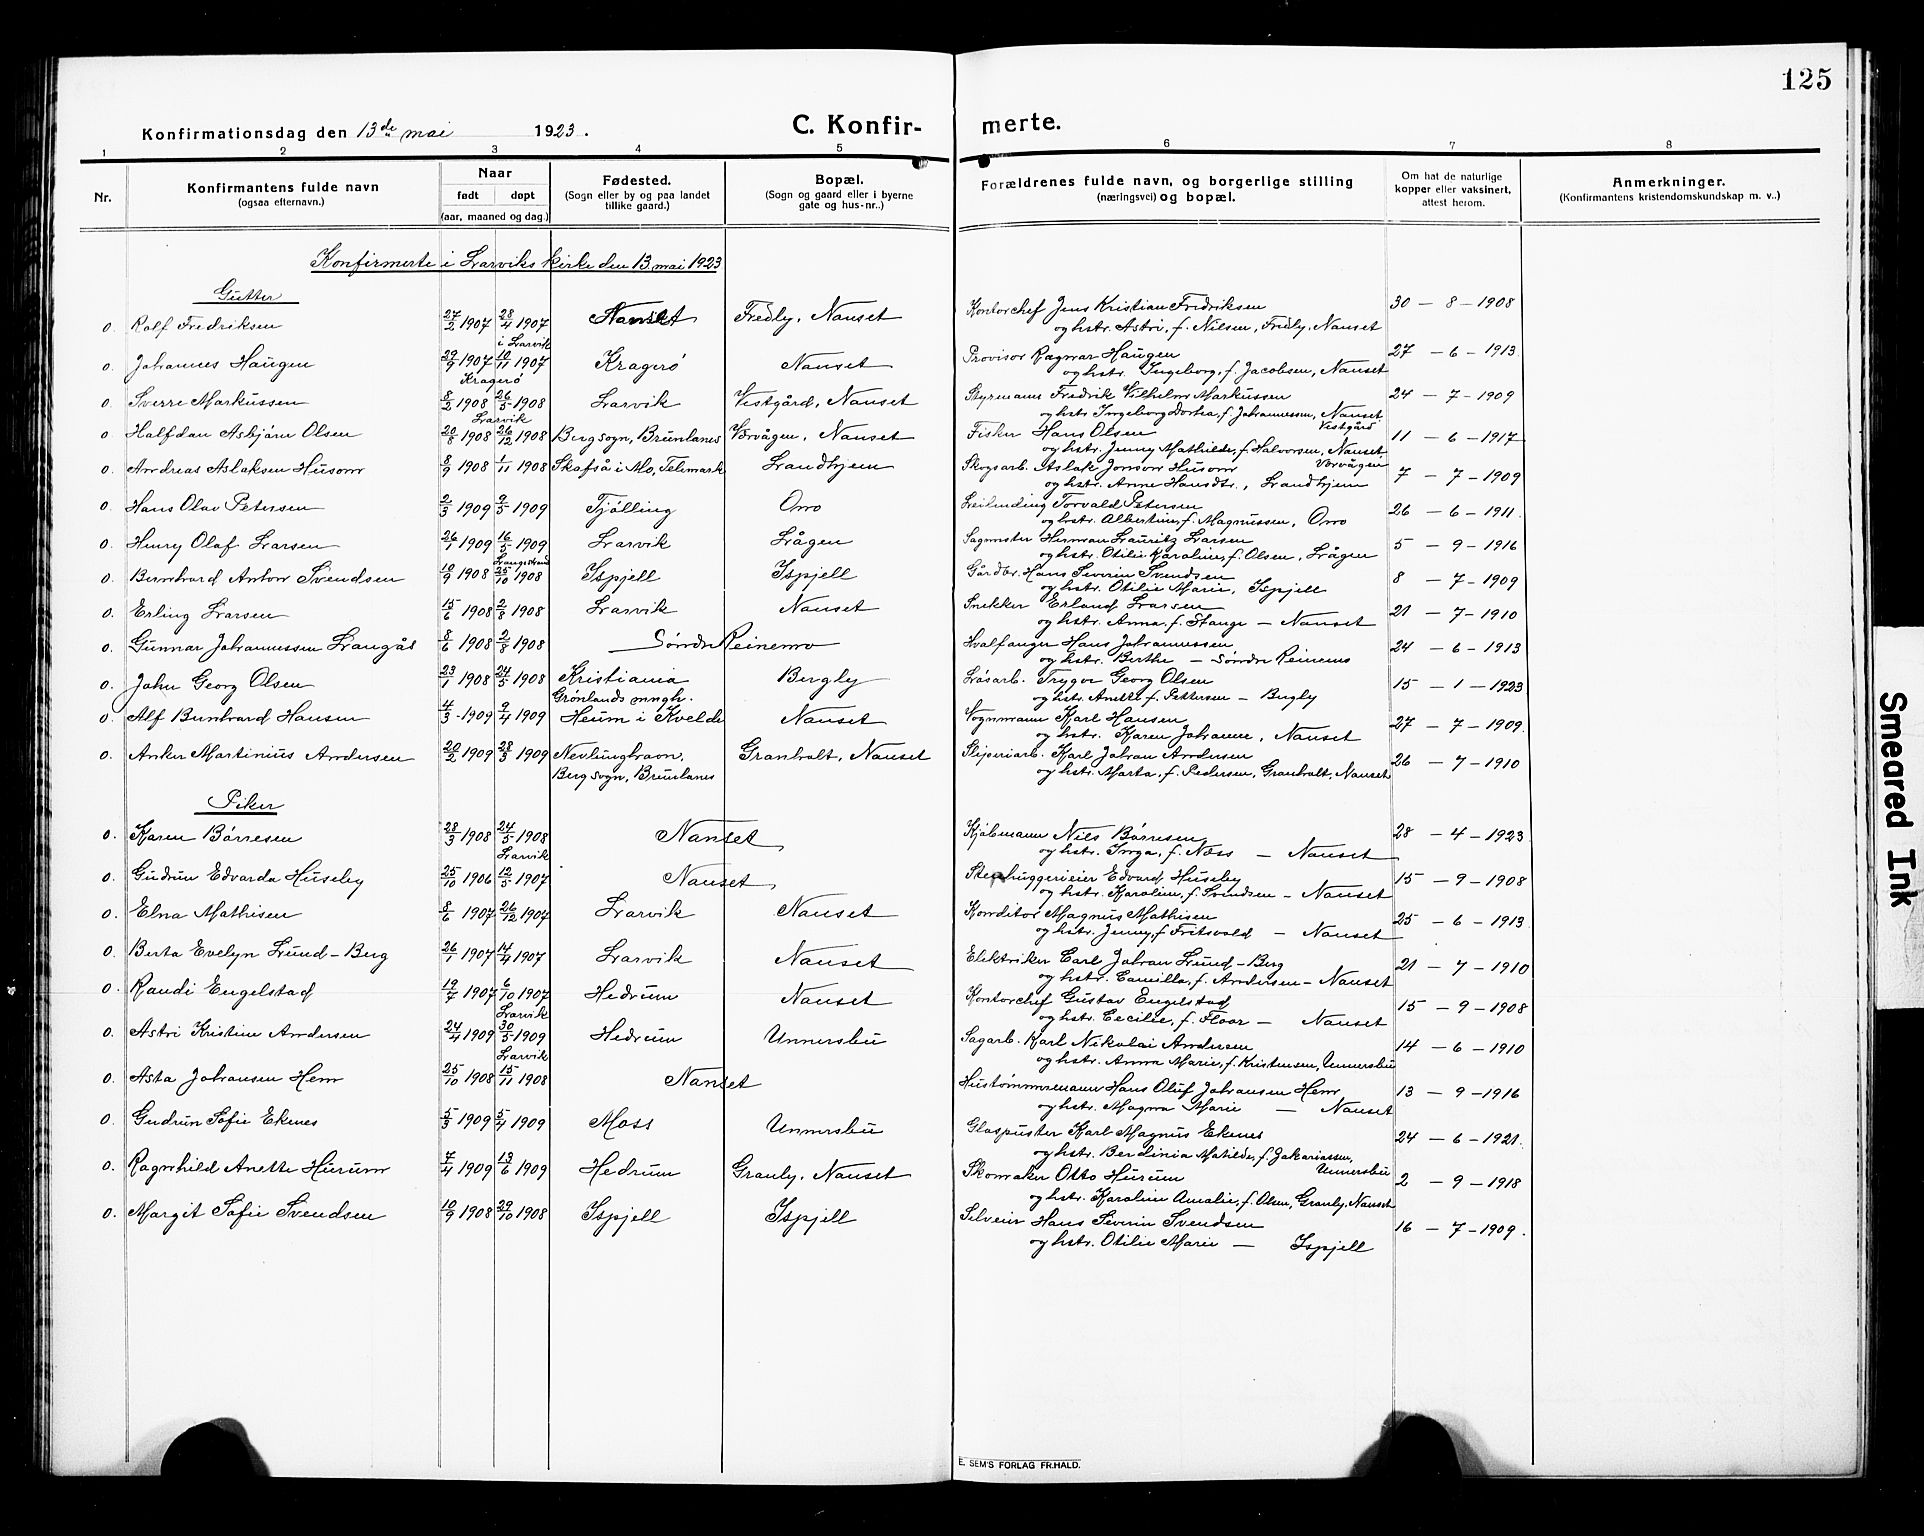 125
Konfirmationsdag den 13de mai 1923.
C. Konfir- merte.
1 2 3 4 5 6 7 8
Nr.
Konfirmantens fulde navn
(ogsaa efternavn.)
Naar
født døpt
(aar, maaned og dag.)
Fødested.
(Sogn eller by og paa landet
tillike gaard.)
Bopæl.
(Sogn og gaard eller i byerne
gate og hus-nr..)
Forældrenes fulde navn, og borgerlige stilling
(næringsvei) og bopæl.
Om hat de naturlige
kopper eller vaksinert,
attest herom.
Anmerkninger.
(Konfirmantens kristendomskundskap m. v..)
Konfirmerte i Larviks kirke den 13. mai 1923
Gutter
o. Rolf Fredriksen 27/2 1907 28/4 1907 i Larvik Nanset Fredly, Nanset Kontorchef Jens Kristian Fredriksen 30 - 8 - 1908
og hstr. Astri, f. Nilsen, Fredly, Nanset
o. Johannes Haugen 29/9 1907 10/11 1907 Kragerø Kragerø Nanset Provisor Ragnar Haugen 27 - 6 - 1913
og hstr. Ingeborg, f. Jacobsen, Nanset
o. Sverre Markussen 8/2 1908 26/5 1908 Larvik Larvik Vestgård, Nanset Styrmann Fredrik Vilhelm Markussen 24 - 7 - 1909
og hstr. Ingeborg Dorthea, f. Johannessen, Nanset
Vestgård
o. Halfdan Asbjørn Olsen 20/8 1908 26/12 1908 Berg sogn, Brunlanes Vorvågen, Nanset Fisker Hans Olsen 11 - 6 - 1917
og hstr. Jenny Mathilde, f. Halvorsen, Nanset
Vorvågen
o. Andreas Aslaksen Husom 8/9 1908 1/11 1908 Skafså i Mo, Telemark Landhjem Skogsarb. Aslak Jonson Husom 7 - 7 - 1909
og hstr. Anne Hansdtr., Landhjem
o. Hans Olav Petersen 2/3 1909 9/5 1909 Tjølling Omo Leilending Torvald Petersen 26 - 6 - 1911.
og hstr. Albertine, f. Magnussen, Omo
o. Henry Olaf Larsen 26/1 1909 16/5 1909 Larvik Lågen Sagmester Herman Lauritz Larsen 5 - 9 - 1916
og hstr. Otilie Karoline, f. Olsen, Lågen
o. Bernhard Anton Svendsen 10/9 1908 Langestrand 25/10 1908 Ispjell Ispjell Gårdbr. Hans Severin Svendsen 8 - 7 - 1909
og hstr. Otilie Marie, Ispjell
o. Erling Larsen 15/6 1908 2/8 1908 Larvik Nanset Snekker Erland Larsen 21 - 7 - 1910
og hstr. Anna, f. Stange - Nanset
o. Gunnar Johannessen Langås 8/6 1908 2/8 1908 Søndre Reinemo Hvalfanger Hans Johannessen 24 - 6 - 1913
og hstr. Berthe - Søndre Reinemo
o. John Georg Olsen 23/1 1908 24/5 1908 Kristiania Bergly Løsarb. Trygve Georg Olsen 15 - 1 - 1923
Grønlands mngh. og hstr. Anette f. Pettersen - Bergly
o. Alf Bernhard Hansen 4/3 - 1909 9/4 1909 Heum i Kvelde Nanset Vognmann Karl Hansen 27 - 7 - 1909.
og hstr. Karen Johanne, Nanset
o. Anker Martinius Andersen 20/2 1909 28/3 1909 Nevlunghavn, Granholt, Nanset Sliperiarb. Karl Johan Andersen 26 - 7 - 1910
Berg sogn, Brunlanes og hstr. Marta, f. Pedersen, Granholt, Nanset
Piker
o. Karen Børresen 28/3 1908 24/5 1908 Larvik Nanset Kjøbmann Niels Børresen 28 - 4 - 1923
og hstr. Inga, f. Næss - Nanset
o. Gudrun Edvarda Huseby 25/10 1906 12/5 1907 Nanset Stenhuggerieier Edvard Huseby 15 - 9 - 1908
og hstr. Karoline, f. Svendsen - Nanset
o. Elna Mathisen 8/6 1907 26/12 1907 Larvik Nanset Konditor Magnus Mathisen 25 - 6 - 1913
og hstr. Jenny, f Fritsvold - Nanset
o. Berta Evelyn Lund-Berg 26/1 1907 14/4 1907 Larvik Nanset Elektriker Carl Johan Lund-Berg 21 - 7 - 1910
og hstr. Camilla, f. Andersen - Nanset
o. Randi Engelstad 19/7 1907 6/10 1907 Larvik Hedrum Nanset Kontorchef Gustav Engelstad 15 - 9 - 1908
og hstr. Cecilie, f. Floor - Nanset
o. Astri Kristine Andersen 24/4 1909 30/5 1909 Larvik Hedrum Unnersbu Sagarb. Karl Nikolai Andersen 14 - 6 - 1910
og hstr. Anna Marie, f. Kristensen, Unnersbu
o. Asta Johansen Hem 25/10 1908 15/11 1908 Nanset Hustømmermann Hans Oluf Johansen Hem 13 - 9 - 1916
og hstr. Magna Marie - Nanset
o. Gudrun Sofie Ekenes 5/3 1909 5/4 1909 Moss Unnersbu Glaspuster Karl Magnus Ekenes 24 - 6 - 1921.
og hstr. Berdinia Matilde, f. Jakariassen,
Unnersbu
o. Ragnhild Anette Hurum 7/4 1909 13/6 1909 Hedrum Granly, Nanset Skomaker Otto Hurum 2 - 9 - 1918
og hstr. Karoline Amalie, f. Olsen, Granly, Nanset
o. Margit Sofie Svendsen 10/9 1908 29/10 1908 Ispjell Ispjell Selveier Hans Severin Svendsen 16 - 7 - 1909.
og hstr. Otilie Marie - Ispjell
E. SEM'S FORLAG FR.HALD.
Smeared Ink